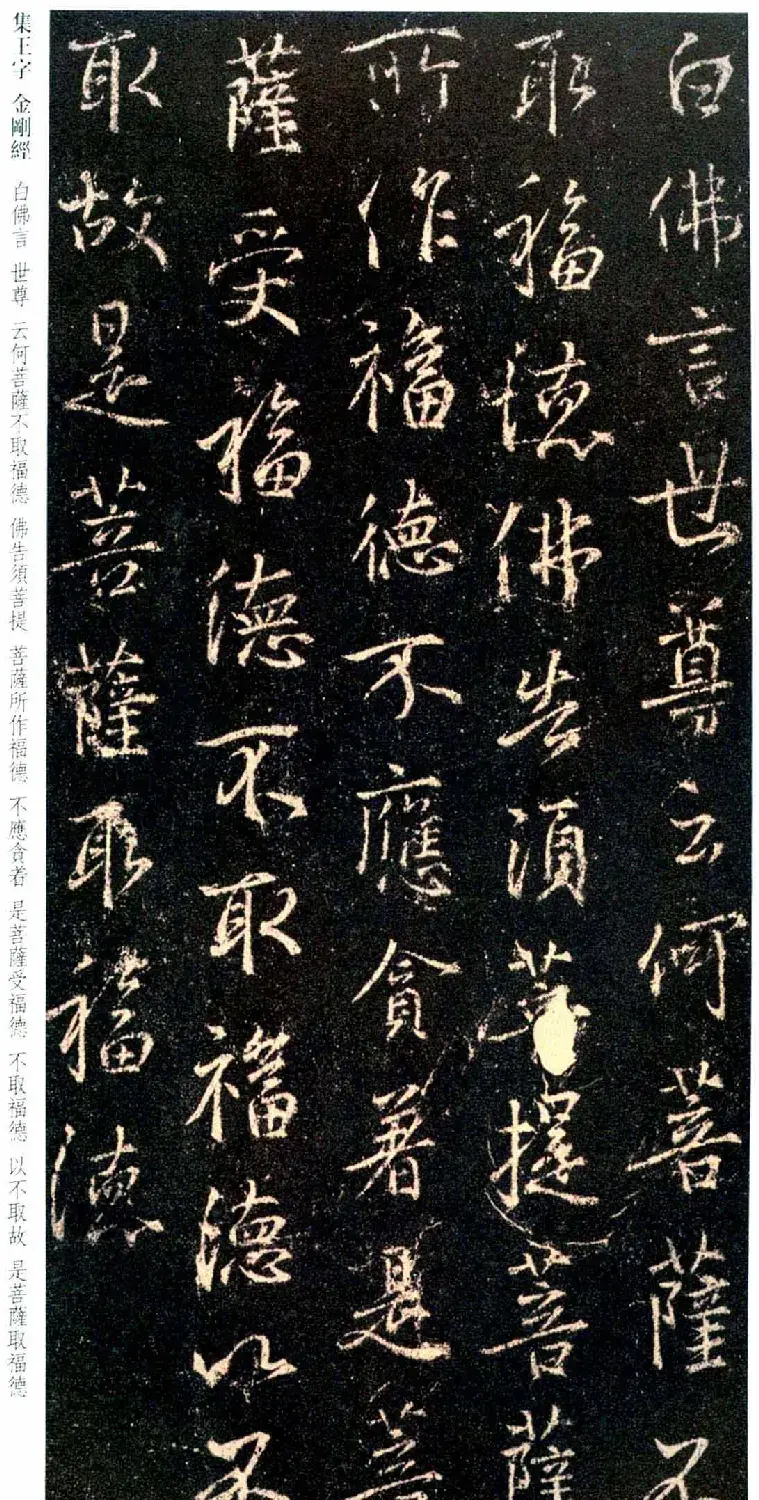 白佛言世尊云何菩薩不
取福德佛告須菩提菩薩
所作福德不應貪著是菩
薩受福德不取福德以不
取故是菩薩取福德
集王字 金剛經 白佛言 世尊 云何菩薩不取福德 佛告須菩提 菩薩所作福德 不應貪著 是菩薩受福德 不取福德 以不取故 是菩薩取福德